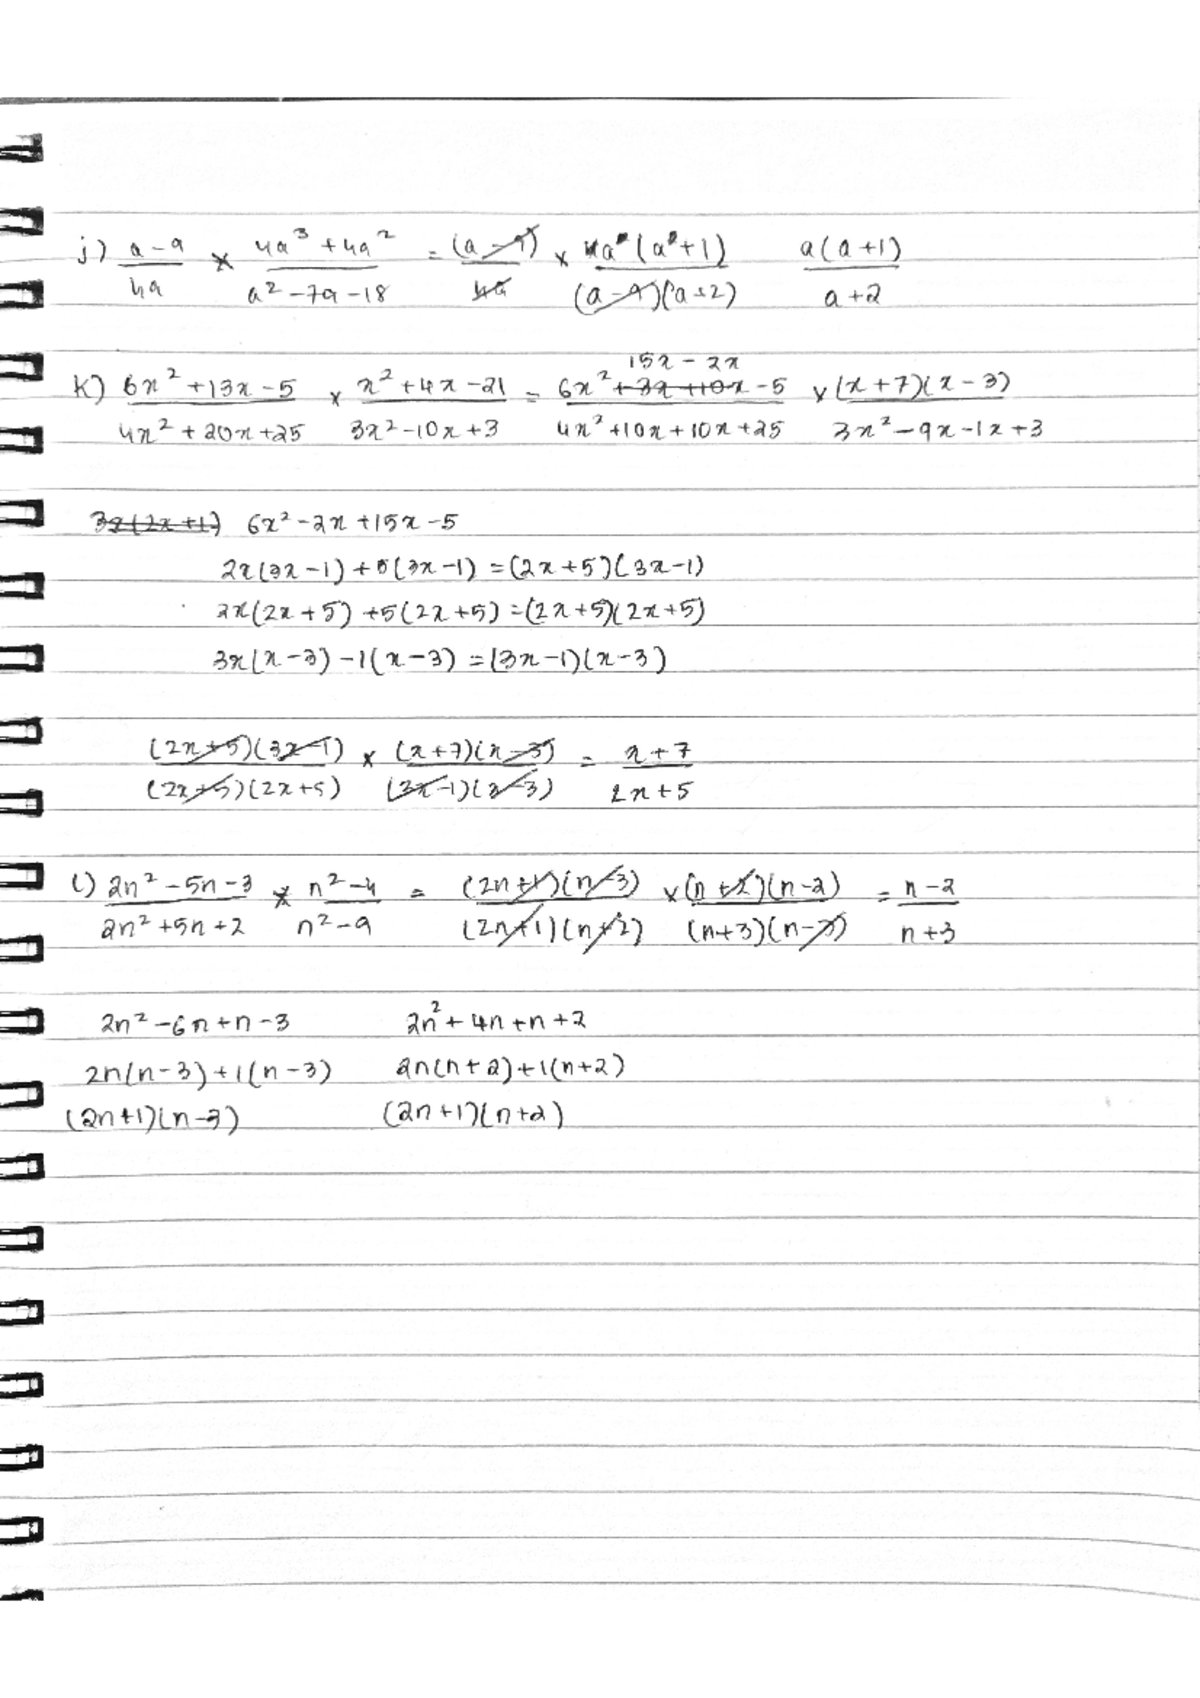 j) (a-9)/(4a) × (4a³+4a²)/(a²-7a-18) = (a-9)/(4a) × 4a(a+1)/((a-9)(a+2)) a(a+1)/(a+2)
15x-2x
k) (6x²+13x-5)/(4x²+20x+25) × (x²+4x-21)/(3x²-10x+3) = (6x²+3x+10x-5)/(4x²+10x+10x+25) × (x+7)(x-3)/(3x²-9x-1x+3)
3x(2x+1) 6x²-2x+15x-5
2x(3x-1)+5(3x-1)=(2x+5)(3x-1)
2x(2x+5)+5(2x+5)=(2x+5)(2x+5)
3x(x-3)-1(x-3)=(3x-1)(x-3)
(2x+5)(3x-1)/((2x+5)(2x+5)) × (x+7)(x-3)/((3x-1)(x-3)) = (x+7)/(2x+5)
l) (2n²-5n-3)/(2n²+5n+2) × (n²-4)/(n²-9) = (2n+1)(n-3)/((2n+1)(n+2)) × (n+2)(n-2)/((n+3)(n-3)) = (n-2)/(n+3)
2n²-6n+n-3 2n²+4n+n+2
2n(n-3)+1(n-3) 2n(n+2)+1(n+2)
(2n+1)(n-3) (2n+1)(n+2)